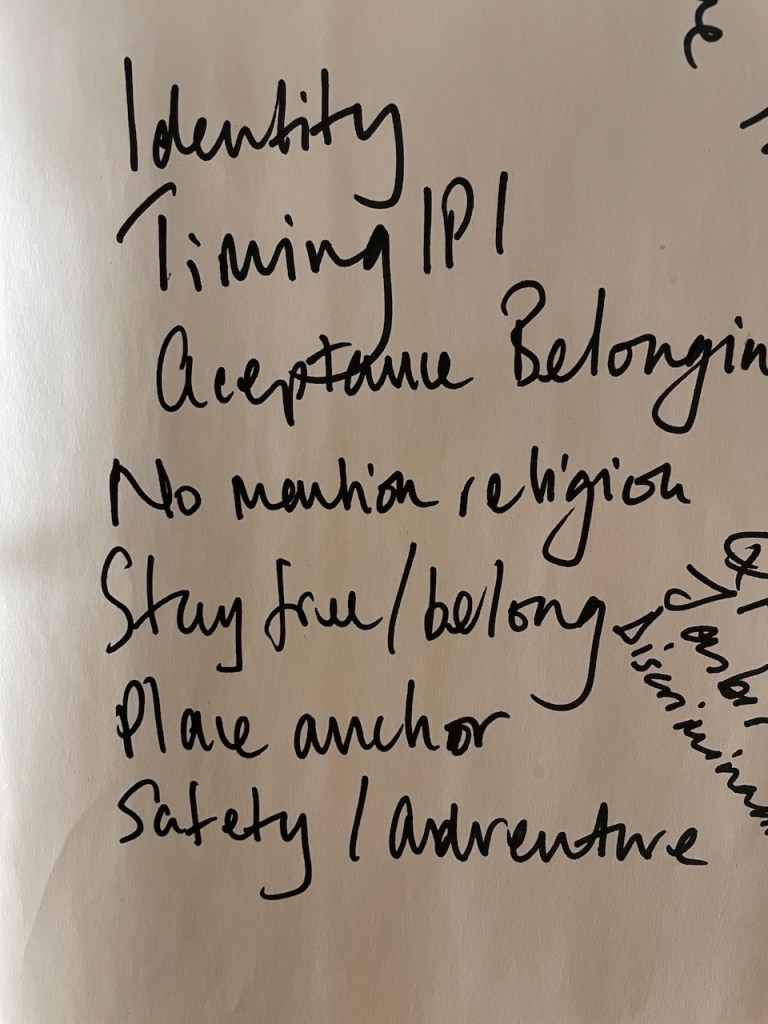 Identity
Timing IPI
Aceptance Belongin
No mention religion
Stay free/belong
Place anchor
Safety / adventure